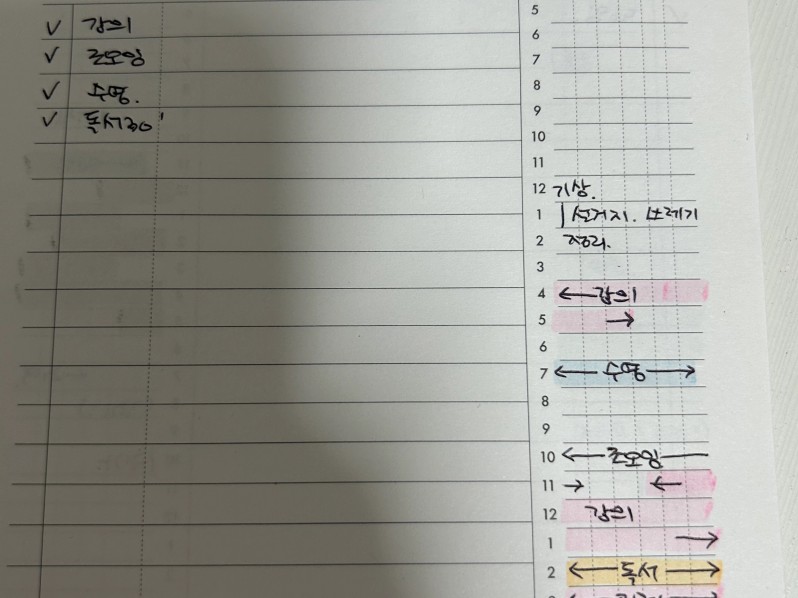 ✓ 강의
✓ 줌모임
✓ 수영.
✓ 독서30'
5
6
7
8
9
10
11
12 기상.
1 설거지. 쓰레기
2 정리.
3
4 ← 강의
5 →
6
7 ← 수영 →
8
9
10 ← 줌모임
11 → ←
12 강의
1 →
2 ← 독서 →